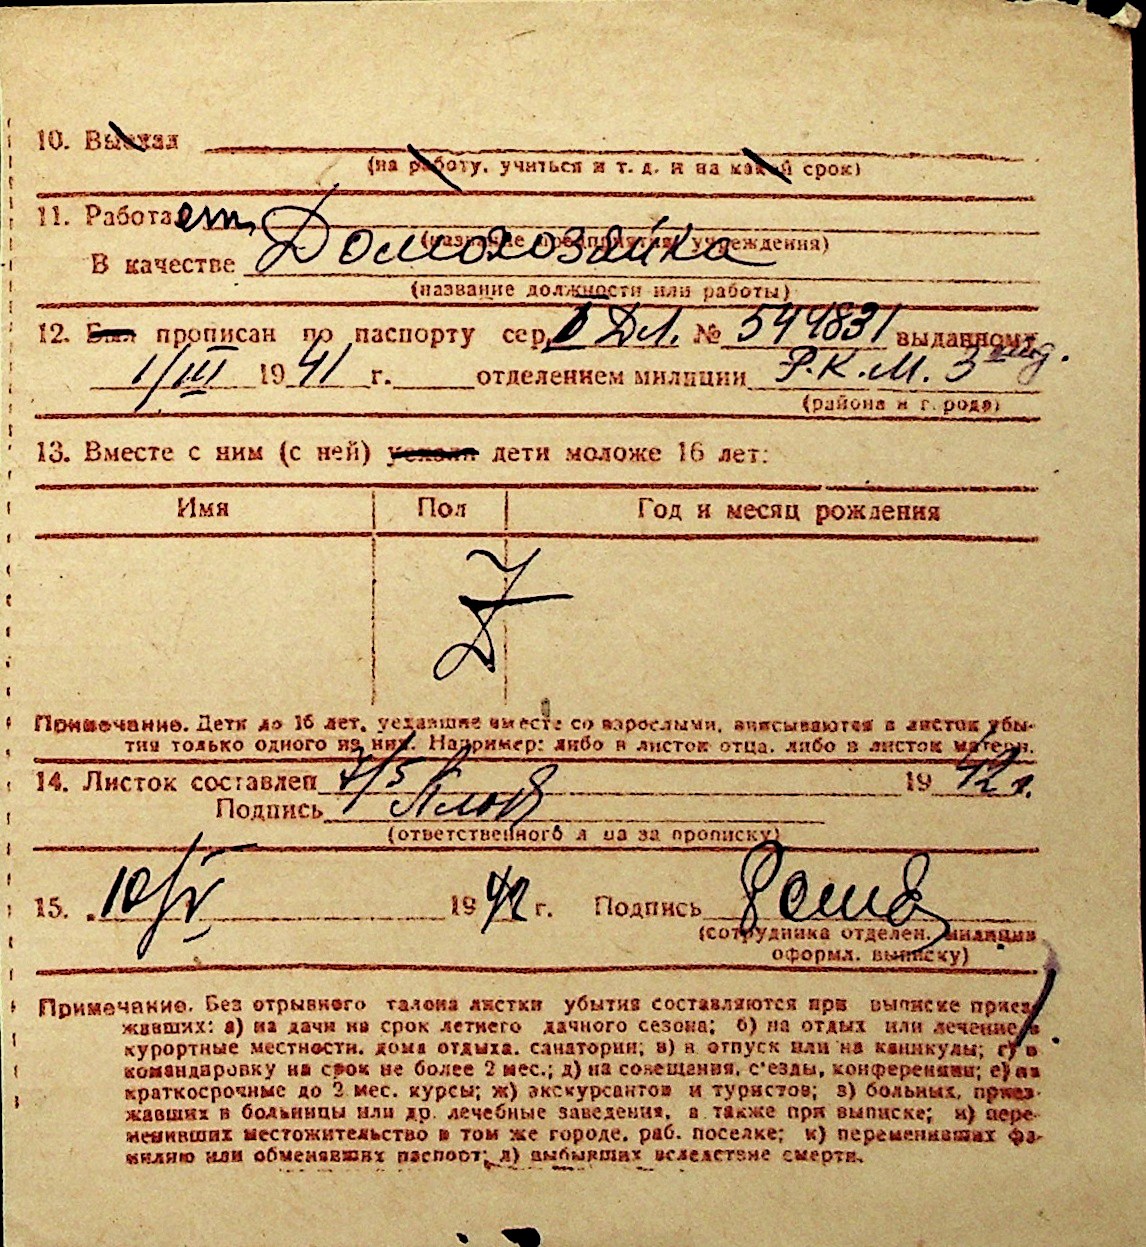 10. Выехал
(на работу, учиться и т. д. и на какой срок)
11. Работает,
(название предприятия, учреждения)
В качестве Домохозяйка
(название должности или работы)
12. Был прописан по паспорту сер. № 544831 выданному
1/III 1941 г. отделением милиции Р.К.М. 3
(района и города)
13. Вместе с ним (с ней) уехали дети моложе 16 лет:
Имя Пол Год и месяц рождения
Примечание. Дети до 16 лет, уехавшие вместе со взрослыми, вписываются в листок убы-
тия только одного из них. Например: либо в листок отца, либо в листок матери.
14. Листок составлен 7/5 1942 г.
Подпись
(ответственного лица за прописку)
15. 10/V 1942 г. Подпись
(сотрудника отделен. милиции
оформл. выписку)
Примечание. Без отрывного талона листки убытия составляются при выписке приез-
жавших: а) на дачи на срок летнего дачного сезона; б) на отдых или лечение в
курортные местности, дома отдыха, санатории; в) в отпуск или на каникулы; г) в
командировку на срок не более 2 мес.; д) на совещания, с'езды, конференции; е) на
краткосрочные до 2 мес. курсы; ж) экскурсантов и туристов; з) больных, приез-
жавших в больницы или др. лечебные заведения, а также при выписке; и) пере-
менивших местожительство в том же городе, раб. поселке; к) переменивших фа-
милию или обменявших паспорт; л) выбывших вследствие смерти.